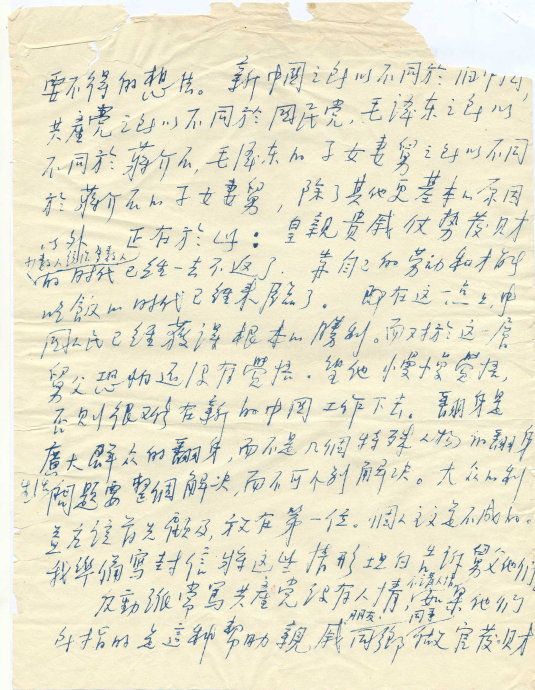 要不得的想法。新中國之所以不同於旧中國,
共產党之所以不同於國民党,毛澤东之所以
不同於蔣介石,毛澤东的子女妻舅之所以不同
於蔣介石的子女妻舅,除了其他更基本的原因
以外,正在於此:皇親貴戚仗勢發財
少數人統治多數人
的时代已經一去不返了。靠自己的劳动和才能
吃飯的时代已經来臨了。在这一点上中
國人民已經獲得根本的勝利。而对於这一層
舅父恐怕还沒有覺悟。望他慢慢覺悟,
否则很难在新的中國工作下去。翻身是
廣大群众的翻身,而不是几個特殊人物的翻身
生活問題要整個解决,而不可个别解决。大众的利
益应該首先顧及,放在第一位。個人主义是不成的。
我準備寫封信将这些情形坦白告訴舅父他們
不講人情
反動派常罵共產党沒有人情,如果他們
朋友、同事
所指的是這种帮助親戚同鄉做官發財